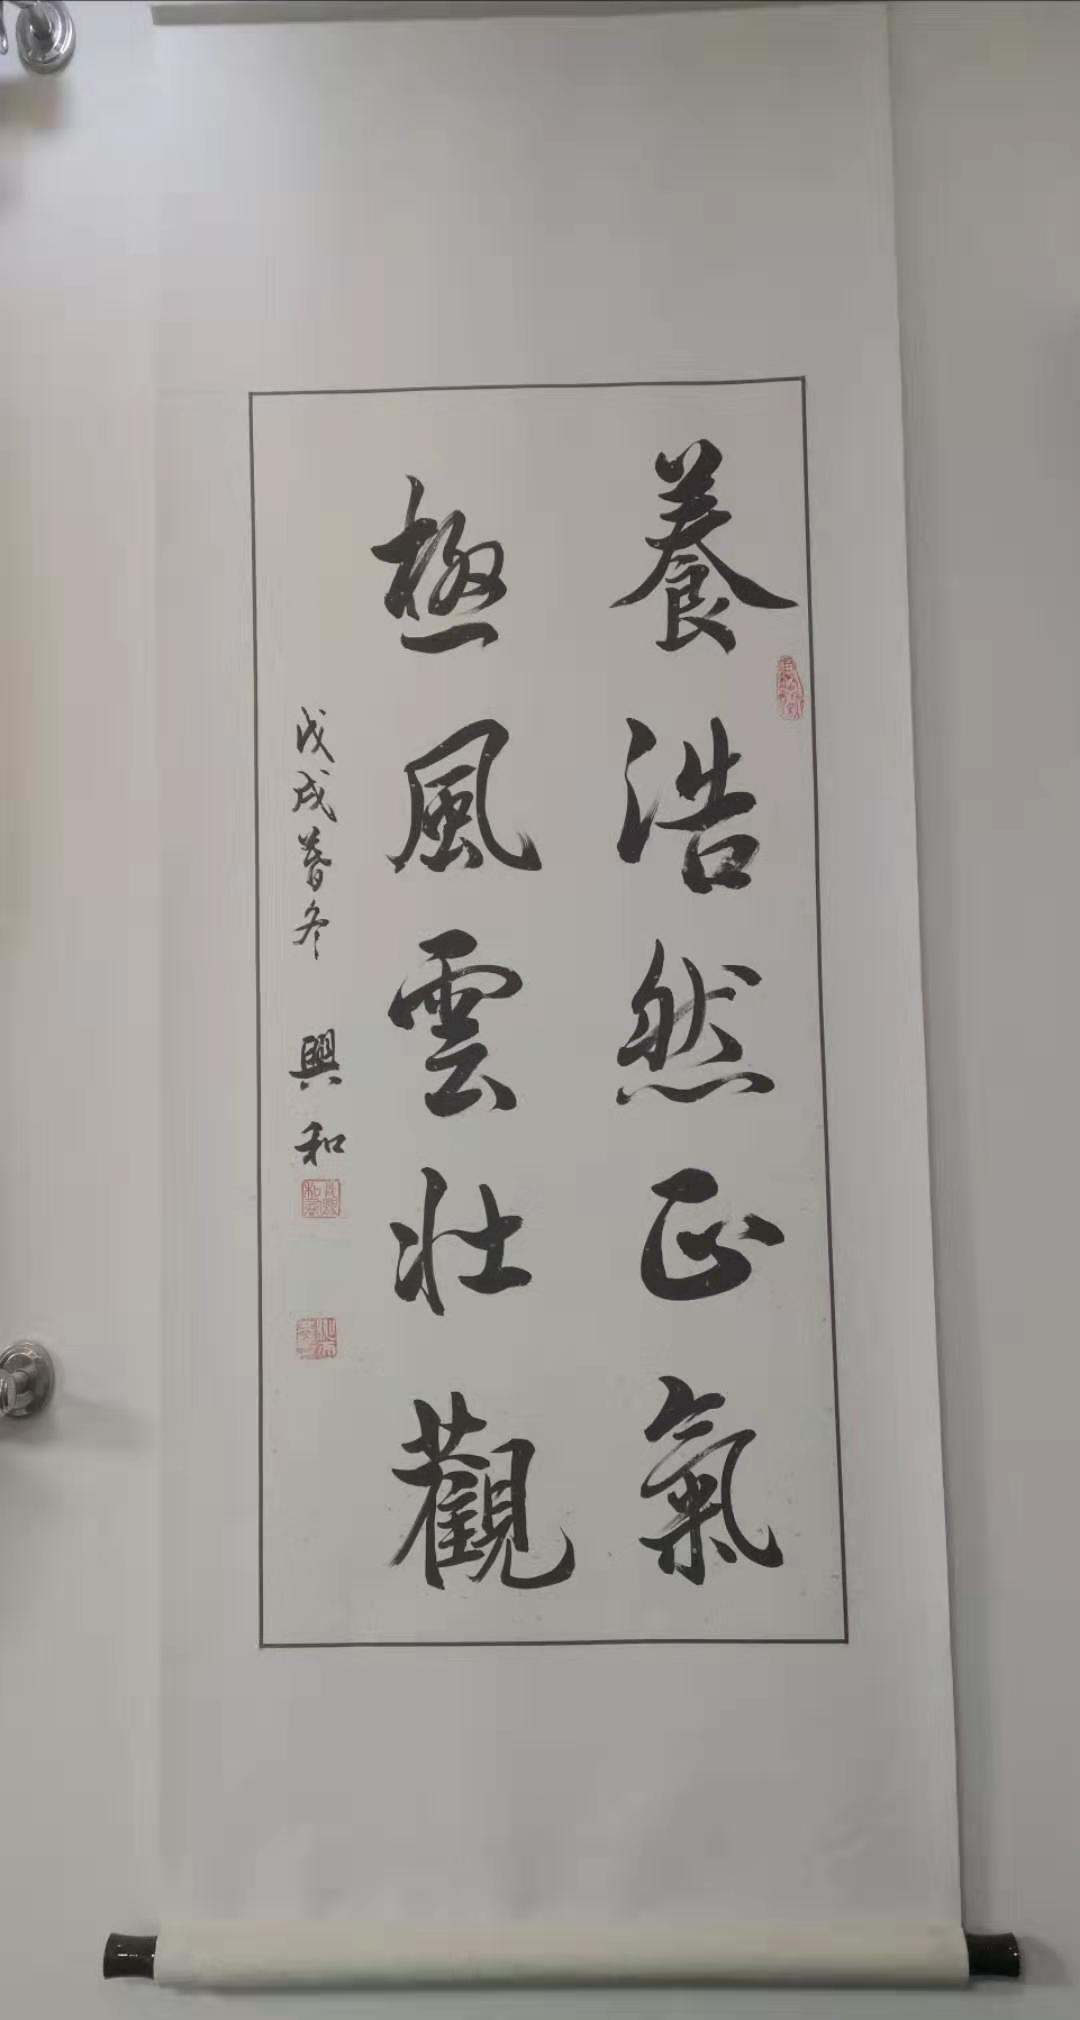 養浩然正氣
極風雲壯觀
戊戌暮冬 興和